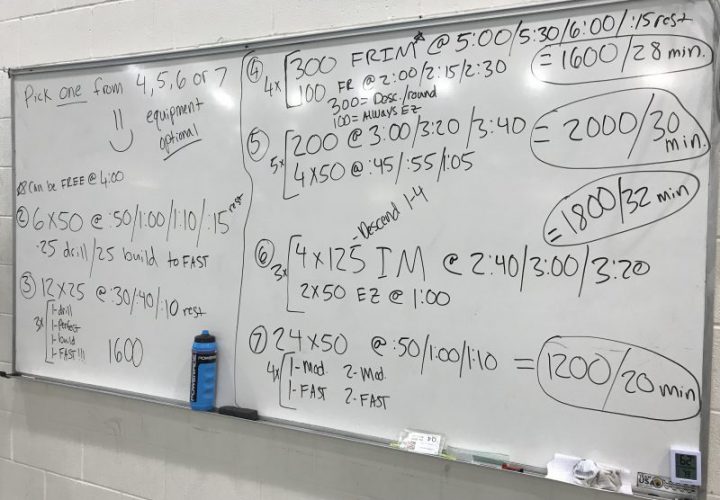 Pick one from 4,5,6 or 7
equipment
optional
Can be FREE @ 4:00
② 6x50 @ :50/1:00/1:10/:15 rest
.25 drill/25 build to FAST
③ 12x25 @ :30/:40/:10 rest
3x
1-drill
1-Perfect
1-build
1-FAST!!!
1600
④ 4x
300 FRIM* @ 5:00/5:30/6:00/:15 rest
100 FR @ 2:00/2:15/2:30
300 = Desc./round
100 = Always EZ
= 1600/28 min.
⑤ 5x
200 @ 3:00/3:20/3:40
4x50 @ :45/:55/1:05
= 2000/30 min.
= 1800/32 min
-Descend 1-4
⑥ 3x
4x125 IM @ 2:40/3:00/3:20
2x50 EZ @ 1:00
⑦ 24x50 @ :50/1:00/1:10
4x
1-Mod. 2-Mod.
1-FAST 2-FAST
= 1200/20 min
POWERADE